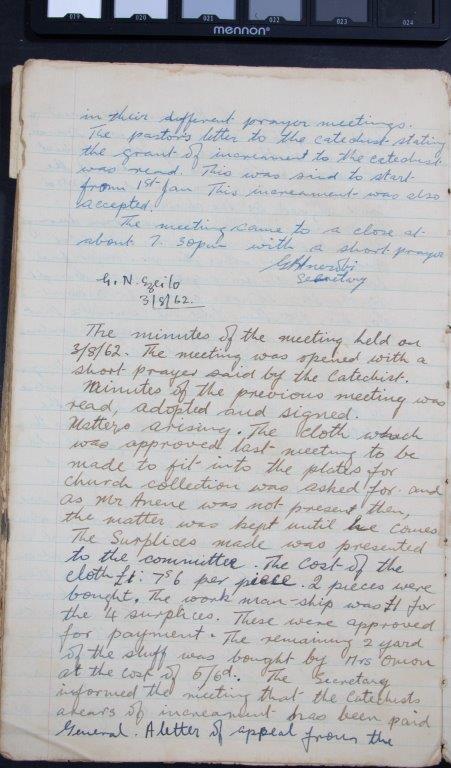 019 020 021 022 023 024
mennon
in their different prayer meetings.
The pastor's letter to the catechist stating
the grant of increament to the catechist
was read. This was said to start
from 1st Jan This increament was also
accepted.
The meeting came to a close at
about 7. 30pm with a short prayer
Secretary
G. N.
3/8/62.
The minutes of the meeting held on
3/8/62. The meeting was opened with a
short prayer said by the Catechist.
Minutes of the previous meeting was
read, adopted and signed.
Matters arising. The cloth which
was approved last meeting to be
made to fit into the plates for
church collection was asked for and
as Mr Anene was not present then,
the matter was kept until he comes
The Surplices made was presented
to the committee. The cost of the
cloth £1: 7s6 per piece. 2 pieces were
bought. The work man-ship was £1 for
the 4 surplices. These were approved
for payment. The remaining 2 yard
of the stuff was bought by Mrs
at the cost of 6/6d. The Secretary
informed the meeting that the Catechists
arears of increament has been paid
General. A letter of appeal from the